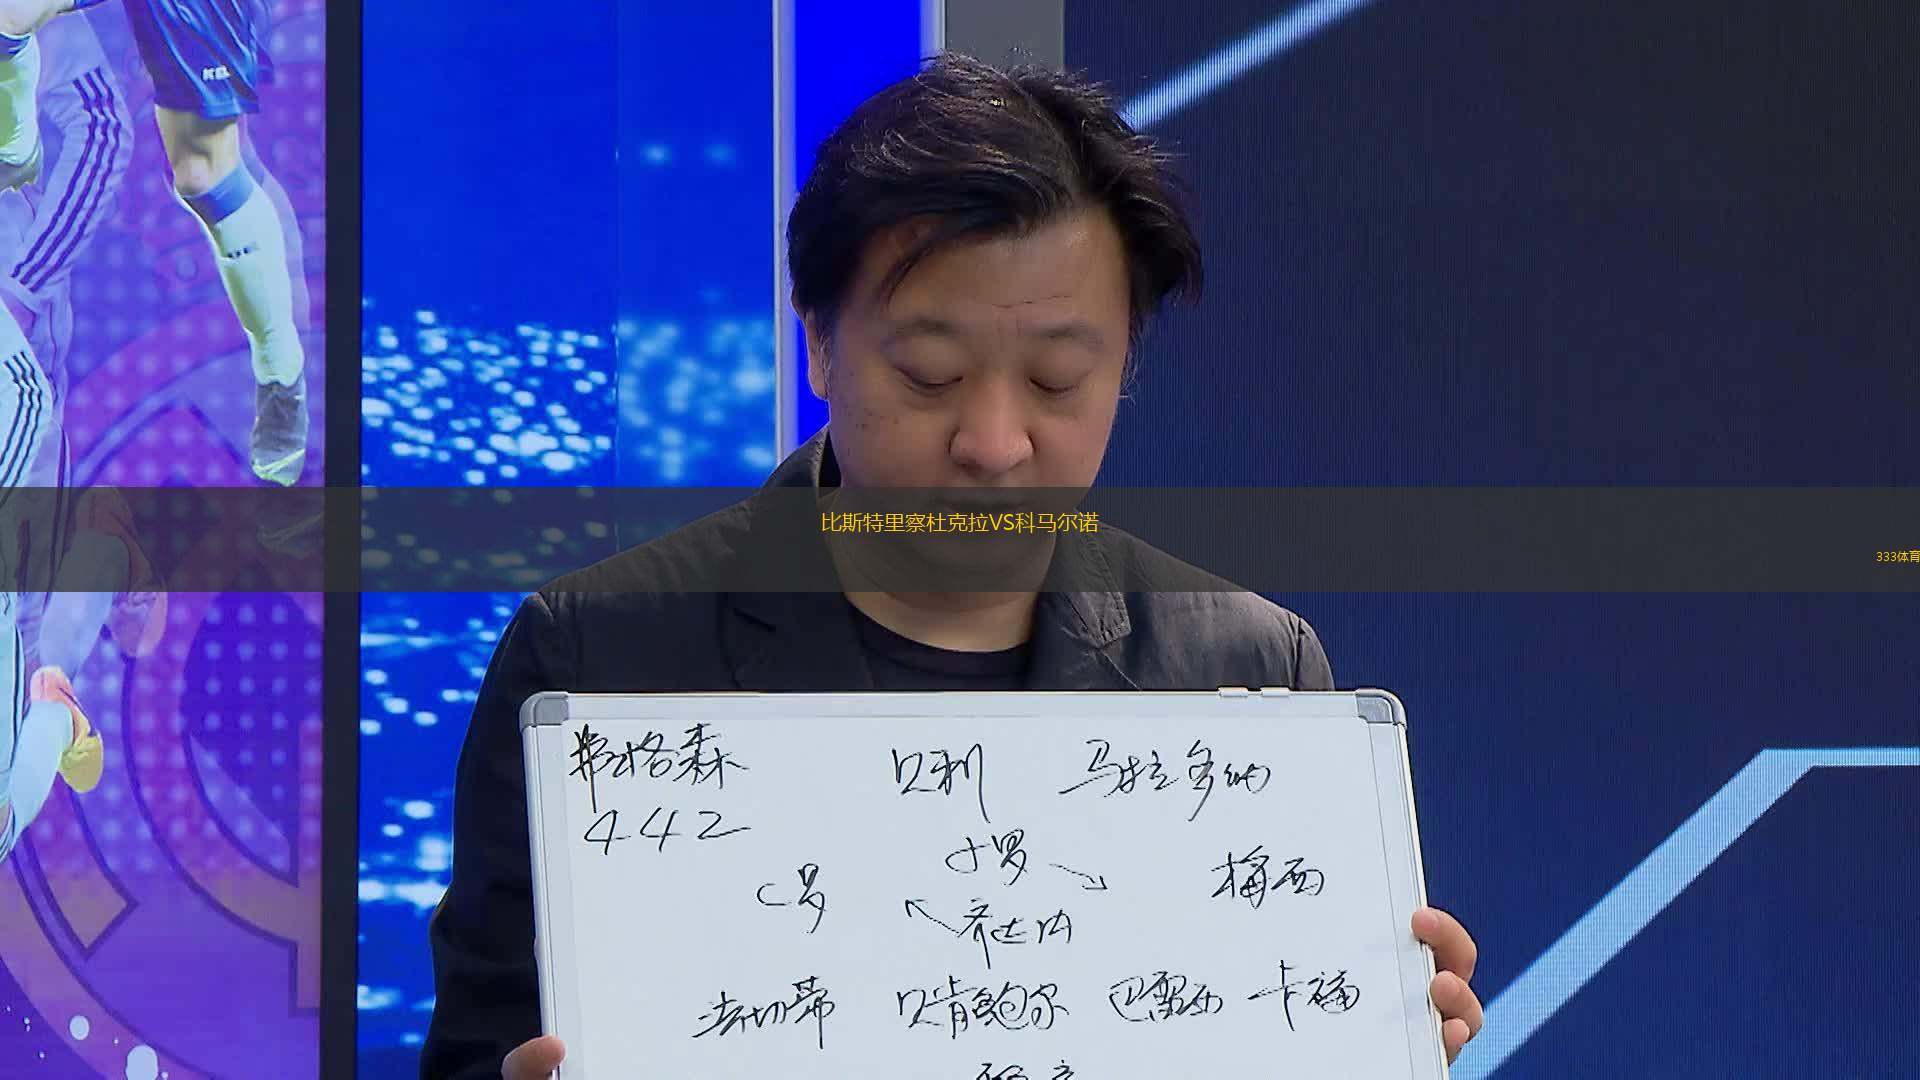 比斯特里察杜克拉VS科马尔诺
333体育
弗格森 贝利 马拉多纳
442
小罗
C罗 梅西
齐达内
法切蒂 贝肯鲍尔 巴雷西 卡福